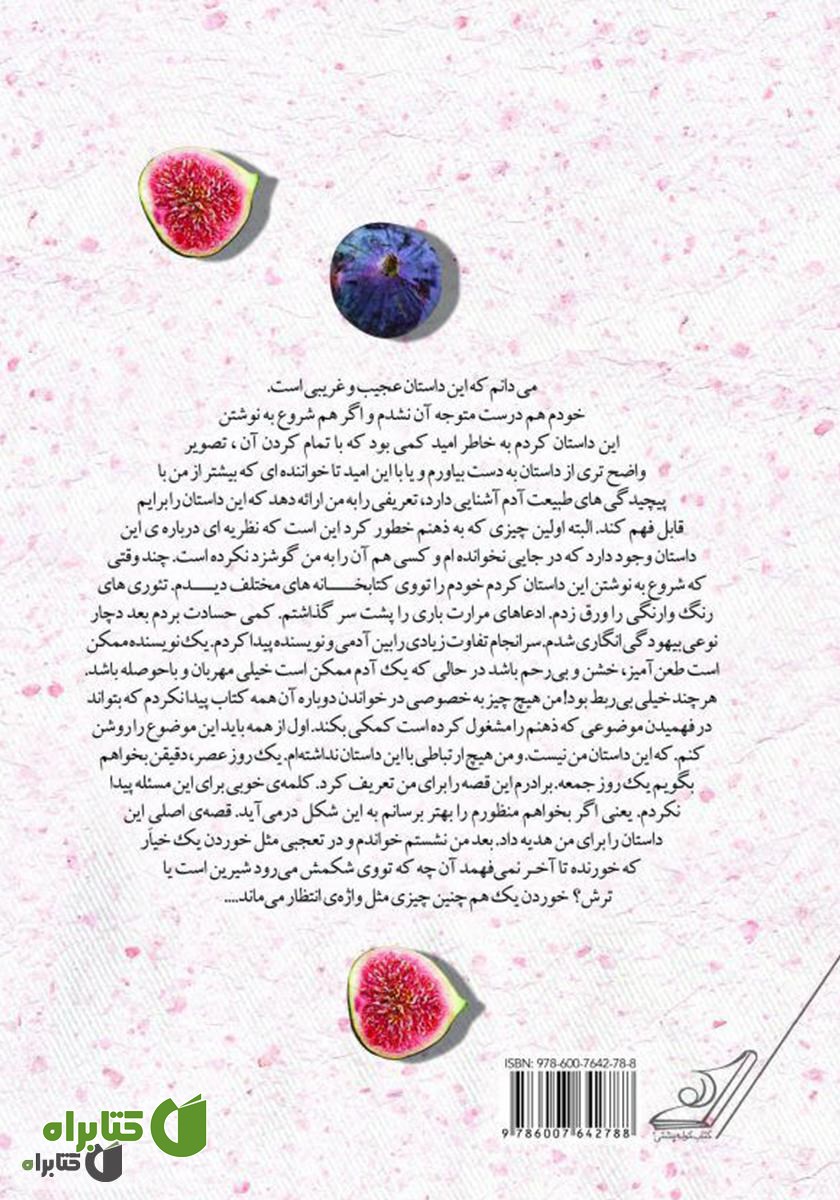 می دانم که این داستان عجیب و غریبی است.
خودم هم درست متوجه آن نشدم و اگر هم شروع به نوشتن
این داستان کردم به خاطر امید کمی بود که با تمام کردن آن ، تصویر
واضح تری از داستان به دست بیاورم و یا با این امید تا خواننده ای که بیشتر از من با
پیچیدگی های طبیعت آدم آشنایی دارد، تعریفی را به من ارائه دهد که این داستان را برایم
قابل فهم کند. البته اولین چیزی که به ذهنم خطور کرد این است که نظریه ای درباره ی این
داستان وجود دارد که در جایی نخوانده ام و کسی هم آن را به من گوشزد نکرده است. چند وقتی
که شروع به نوشتن این داستان کردم خودم را تووی کتابخانه های مختلف دیدم. تئوری های
رنگ وارنگی را ورق زدم. ادعاهای مرارت باری را پشت سر گذاشتم. کمی حسادت بردم بعد دچار
نوعی بیهودگی انگاری شدم. سرانجام تفاوت زیادی را بین آدمی و نویسنده پیدا کردم. یک نویسنده ممکن
است طعن آمیز، خشن و بی‌رحم باشد در حالی که یک آدم ممکن است خیلی مهربان و باحوصله باشد.
هر چند خیلی بی‌ربط بود! من هیچ چیز به خصوصی در خواندن دوباره آن همه کتاب پیدا نکردم که بتواند
در فهمیدن موضوعی که ذهنم را مشغول کرده است کمکی بکند. اول از همه باید این موضوع را روشن
کنم. که این داستان من نیست. و من هیچ ارتباطی با این داستان نداشته‌ام. یک روز عصر، دقیقن بخواهم
بگویم یک روز جمعه. برادرم این قصه را برای من تعریف کرد. کلمه‌ی خوبی برای این مسئله پیدا
نکردم. یعنی اگر بخواهم منظورم را بهتر برسانم به این شکل درمی‌آید. قصه‌ی اصلی این
داستان را برای من هدیه داد. بعد من نشستم خواندم و در تعجبی مثل خوردن یک خیار
که خورنده تا آخر نمی‌فهمد آن چه که تووی شکمش می‌رود شیرین است یا
ترش؟ خوردن یک هم چنین چیزی مثل واژه‌ی انتظار می‌ماند....
ISBN: 978-600-7642-78-8
9 786007 642788
کتاب کوله‌پشتی
کتابراه
کتابراه